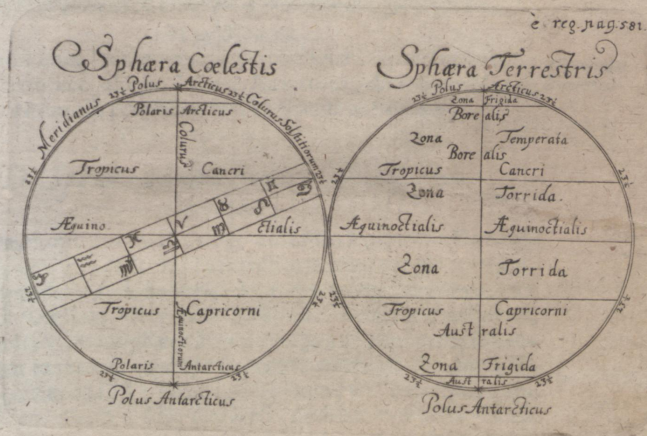 è reg. pag. 581.
Sphæra Cœlestis
Polus Arcticus
23½ 23½
Meridianus
Colurus Solstitiorum
Polaris Arcticus
Colurus
23½ 23½
Tropicus Cancri
♓ ♈ ♉ ♊ ♋
Æquino ctialis
♑ ♒ ♐ ♏ ♎ ♍ ♌
23½ 23½
Tropicus Capricorni
Æquinoctiorum
Polaris Antarcticus
23½ 23½
Polus Antarcticus
Sphæra Terrestris
Polus Arcticus
23½ 23½
Zona Frigida
Bore alis
Zona Temperata
Bore alis
23½ 23½
Tropicus Cancri
Zona Torrida.
Æquinoctialis Æquinoctialis
Zona Torrida
23½ 23½
Tropicus Capricorni
Aust ralis
Zona Frigida
Aust ralis
23½ 23½
Polus Antarcticus